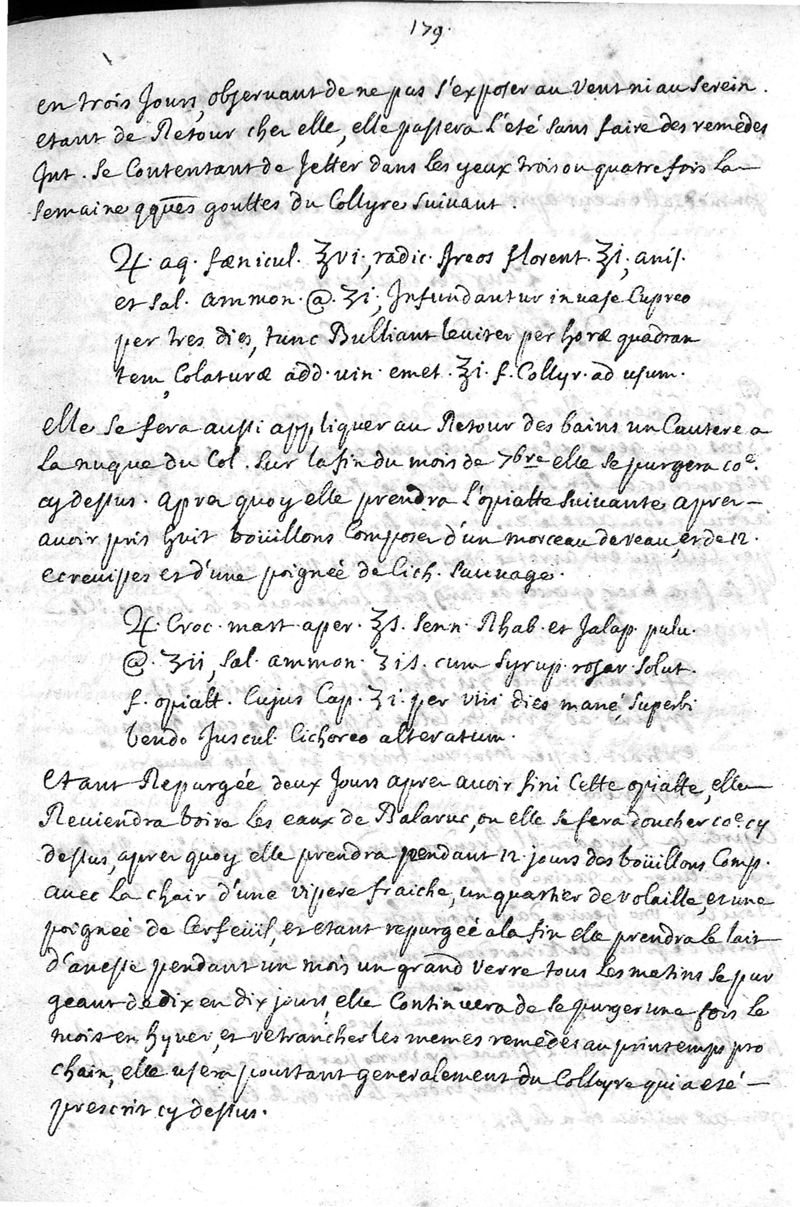 179.
en trois Jours, observant de ne pas s'exposer au vent ni au serein.
etant de Retour chez elle, elle passera l'eté sans faire des remedes
Int. se Contentant de Jetter dans les yeux trois ou quatre fois la
semaine qques gouttes du Collyre suivant.
♃. aq. fœnicul. ℥vi., radic. Ireos florent. ℥i., anis.
et sal. ammon. @. ʒi., Infundantur in vase Cupreo
per tres dies, tunc Bulliant leviter per horæ quadran
tem, Colaturæ add. vin. emet. ℥i. f. Collyr. ad usum.
elle se fera aussi appliquer au Retour des bains un Cautere a
la nuque du Col. sur la fin du mois de 7bre elle se purgera coe.
cy dessus. aprez quoy elle prendra l'opiatte suivante aprez
avoir pris huit boüillons Composez d'un morceau de veau, et de 12.
ecrevisses et d'une poigneé de Cich. sauvage.
♃. Croc. mart. aper. ℥s. senn. Rhab. et Jalap. pulv.
@. ʒii, sal. ammon. ʒis. cum syrup. rosar. solut.
f. opiatt. Cujus Cap. ʒi. per viii dies mané, superbi
bendo Juscul. Cichoreo alteratum.
etant Repurgée deux Jours aprez avoir fini Cette opiatte, elle
Reviendra boire les eaux de Balaruc, ou elle se fera doucher coe. cy
dessus, aprez quoy elle prendra pendant 12 jours des boüillons Comp.
avec la chair d'une vipere fraiche, un quartier de volaille, et une
poigneé de Cerfeüil, et etant repurgeé a la fin elle prendra le lait
d'anesse pendant un mois un grand verre tous les matins se pur
geant de dix en dix jours, elle Continuera de se purger une fois le
mois en hyver, et retrancher les memes remedes au printemps pro
chain, elle usera pourtant generalement du Collyre qui a eté
prescrit cy dessus.